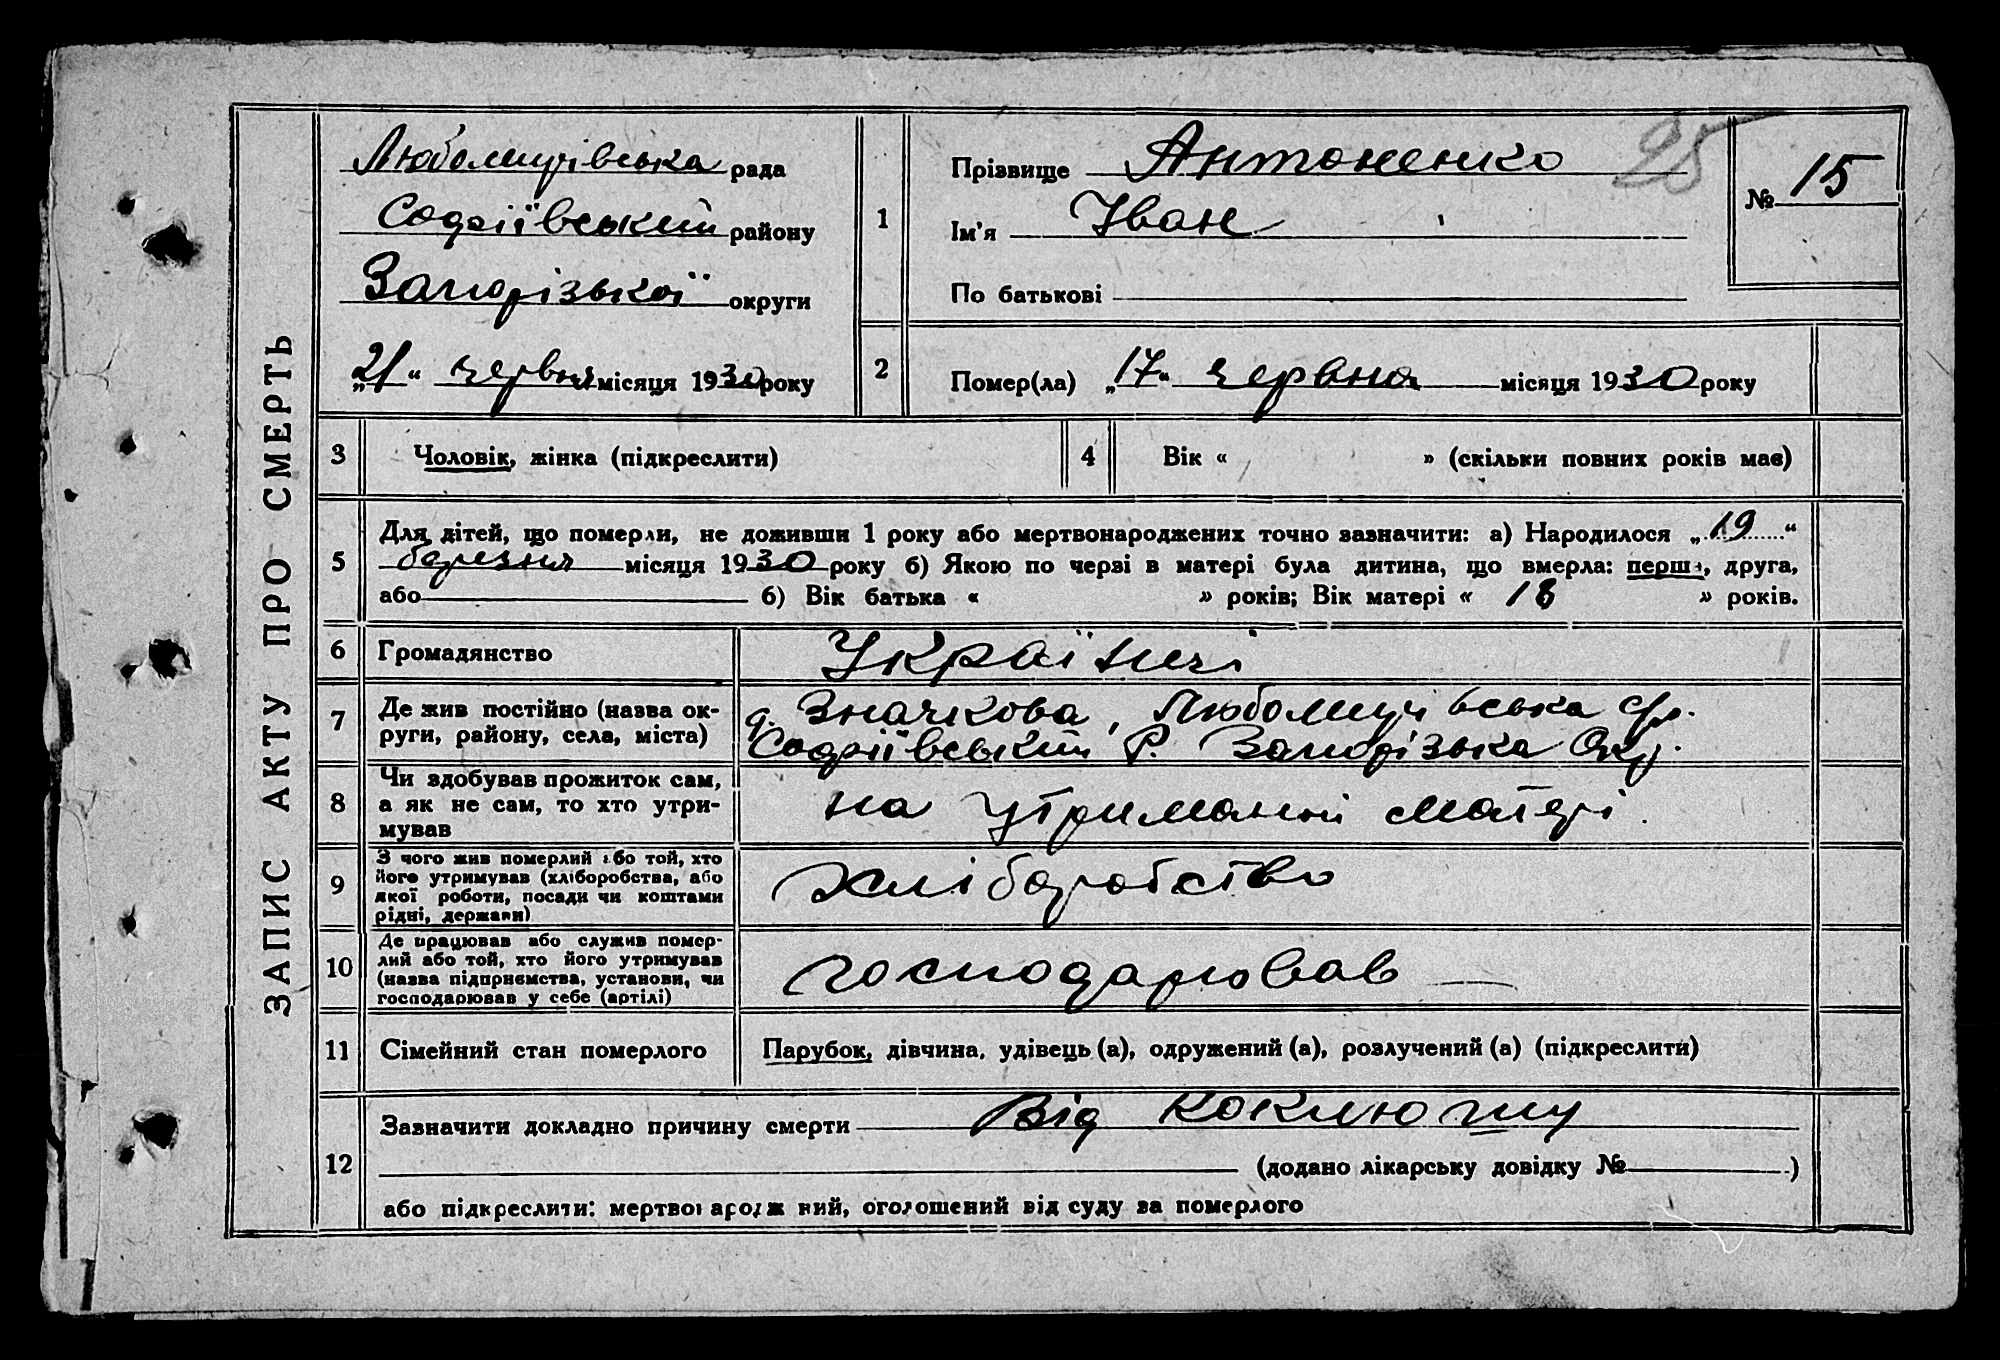 ЗАПИС АКТУ ПРО СМЕРТЬ
Любомирівська рада
Софіївський району
Запорізької округи
„21“ червня місяця 1930 року
1
Прізвище Антоненко
Ім'я Іван
По батькові
25
№ 15
2
Помер(ла) „17“ червня місяця 1930 року
3 Чоловік, жінка (підкреслити)
4 Вік « » (скільки повних років має)
5
Для дітей, що померли, не доживши 1 року або мертвонароджених точно зазначити: а) Народилося „19“
березня місяця 1930 року б) Якою по черзі в матері була дитина, що вмерла: перша, друга,
або б) Вік батька « » років; Вік матері « 18 » років.
6 Громадянство Україїнці
7
Де жив постійно (назва ок-
руги, району, села, міста)
д. Значкова, Любомирівська с/р.
Софіївський Р. Запорізька Окр.
8
Чи здобував прожиток сам,
а як не сам, то хто утри-
мував
на утриманні матері.
9
З чого жив померлий або той, хто
його утримував (хліборобства, або
якої роботи, посади чи коштами
рідні, держави)
хліборобство
10
Де працював або служив помер-
лий або той, хто його утримував
(назва підприємства, установи, чи
господарював у себе (артілі)
господарював
11 Сімейний стан померлого Парубок, дівчина, удівець (а), одружений (а), розлучений (а) (підкреслити)
12
Зазначити докладно причину смерти Від коклюшу
(додано лікарську довідку № )
або підкреслити: мертвонароджений, оголошений від суду за померлого